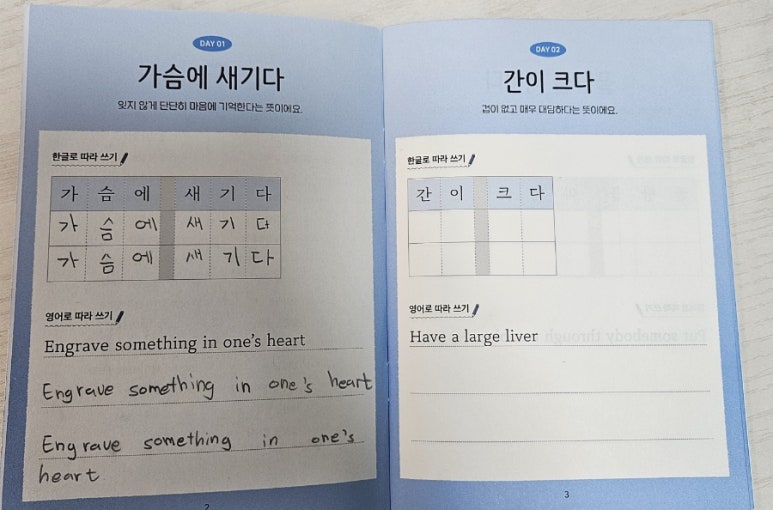 DAY 01
가슴에 새기다
잊지 않게 단단히 마음에 기억한다는 뜻이에요.
한글로 따라 쓰기
가 슴 에 새 기 다
가 슴 에 새 기 다
가 슴 에 새 기 다
영어로 따라 쓰기
Engrave something in one's heart
Engrave something in one's heart
Engrave something in one's
heart
2
DAY 02
간이 크다
겁이 없고 매우 대담하다는 뜻이에요.
한글로 따라 쓰기
간 이 크 다
영어로 따라 쓰기
Have a large liver
3